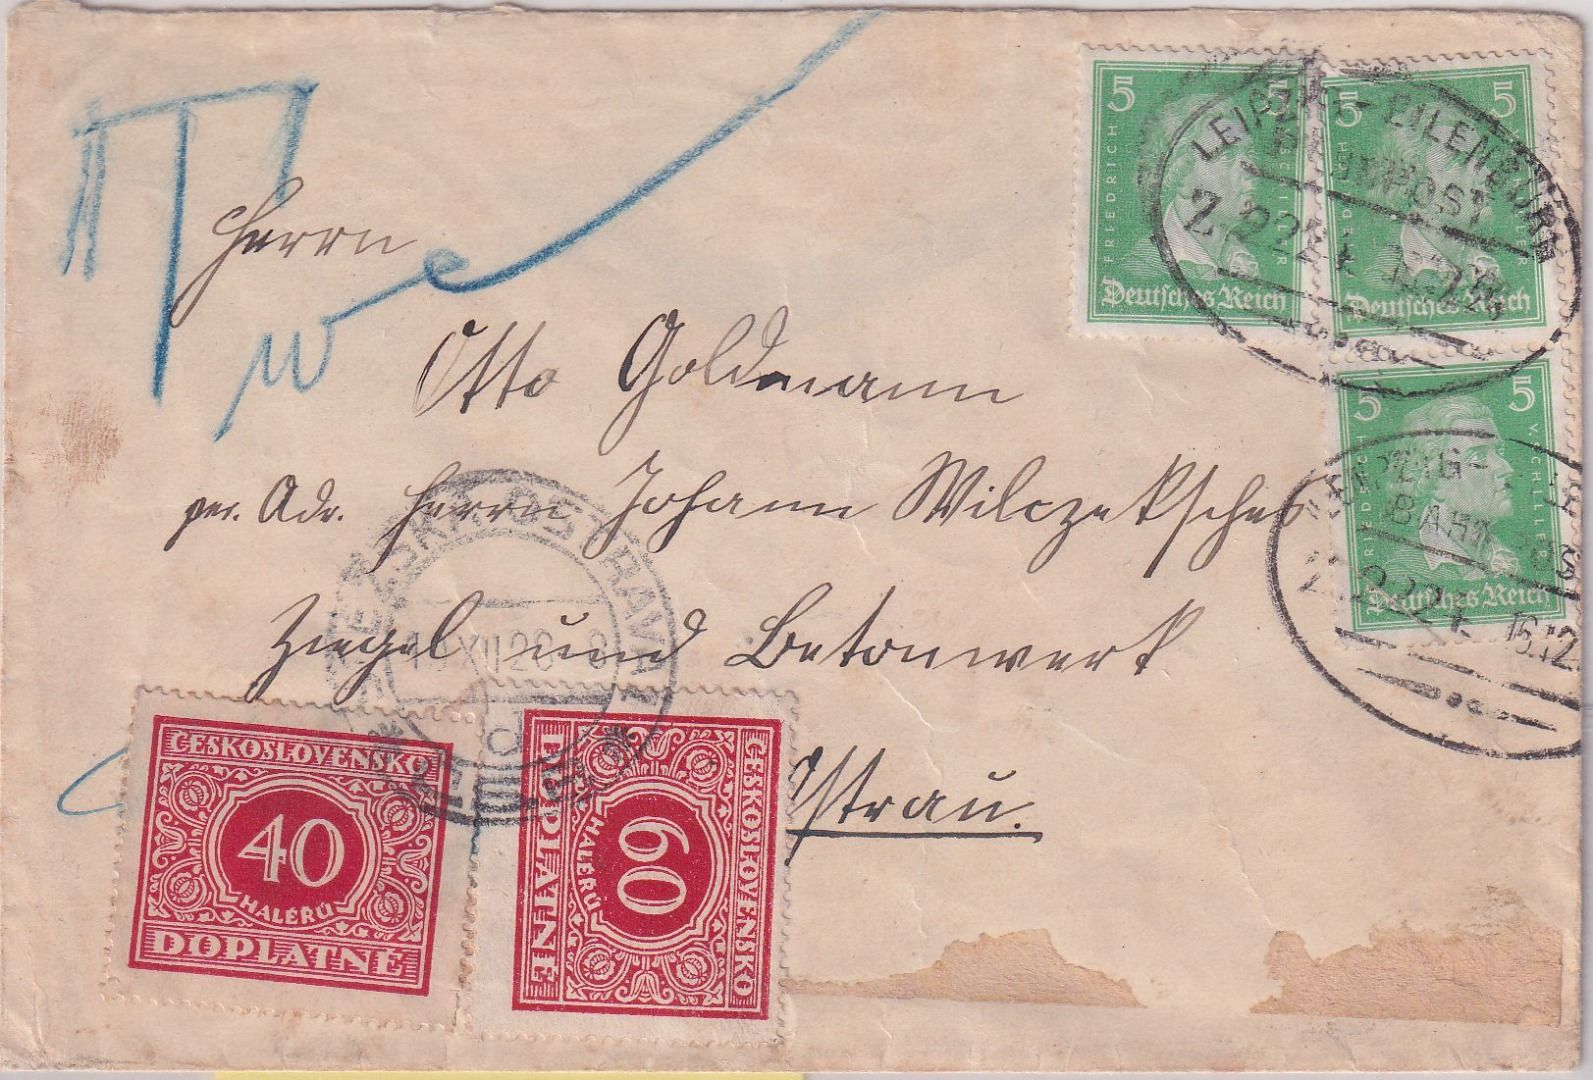 Herrn
Otto Goldmann
per. Adr. Herrn Johann Wilczeksches
Ziegel und Betonwerk
Ostrau.
5 5
FRIEDRICH V. SCHILLER
Deutsches Reich
5 5
FRIEDRICH V. SCHILLER
Deutsches Reich
5 5
FRIEDRICH V. SCHILLER
Deutsches Reich
LEIPZIG - EILENBURG
BAHNPOST
LEIPZIG -
BAHNPOS
OSTRAVA
XII 28
ČESKOSLOVENSKO
40
HALÉŘŮ
DOPLATNÉ
ČESKOSLOVENSKO
60
HALÉŘŮ
DOPLATNÉ
T